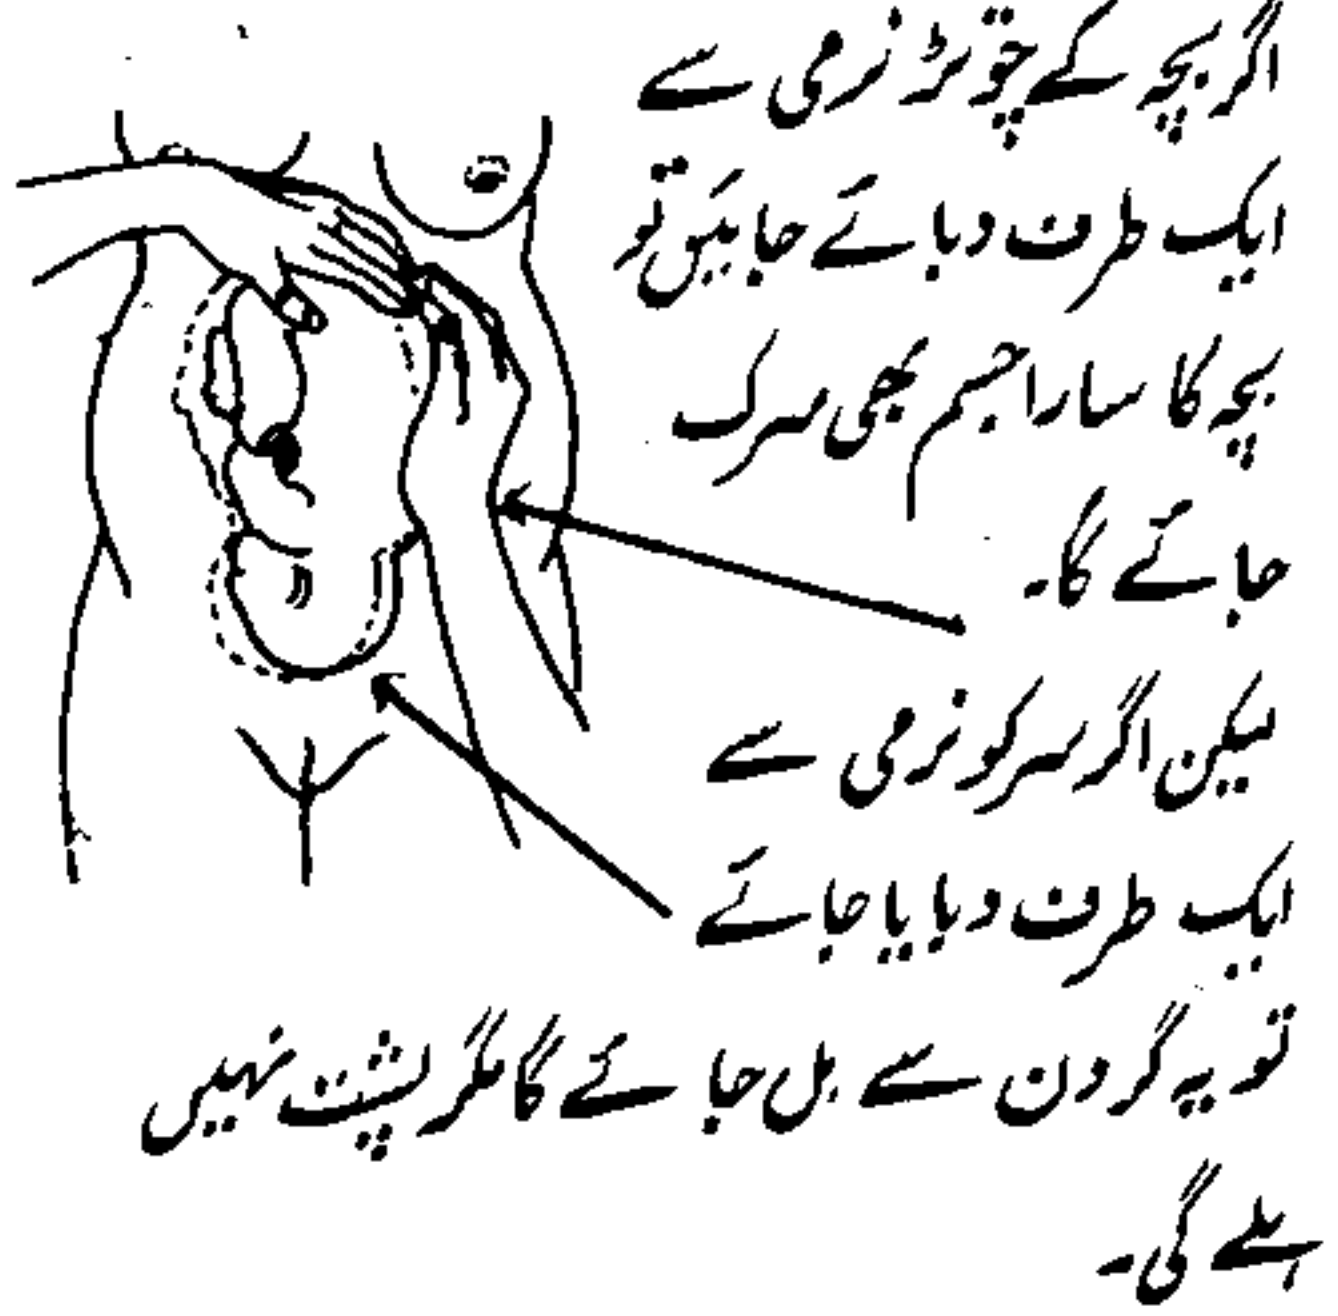 اگر بچہ کے چوتڑ نرمی سے
ایک طرف دبائے جائیں تو
بچہ کا سارا جسم بھی سرک
جائے گا۔
لیکن اگر سر کو نرمی سے
ایک طرف دبایا جائے
تو یہ گردن سے ہل جائے گا مگر پشت نہیں
ہلے گی۔